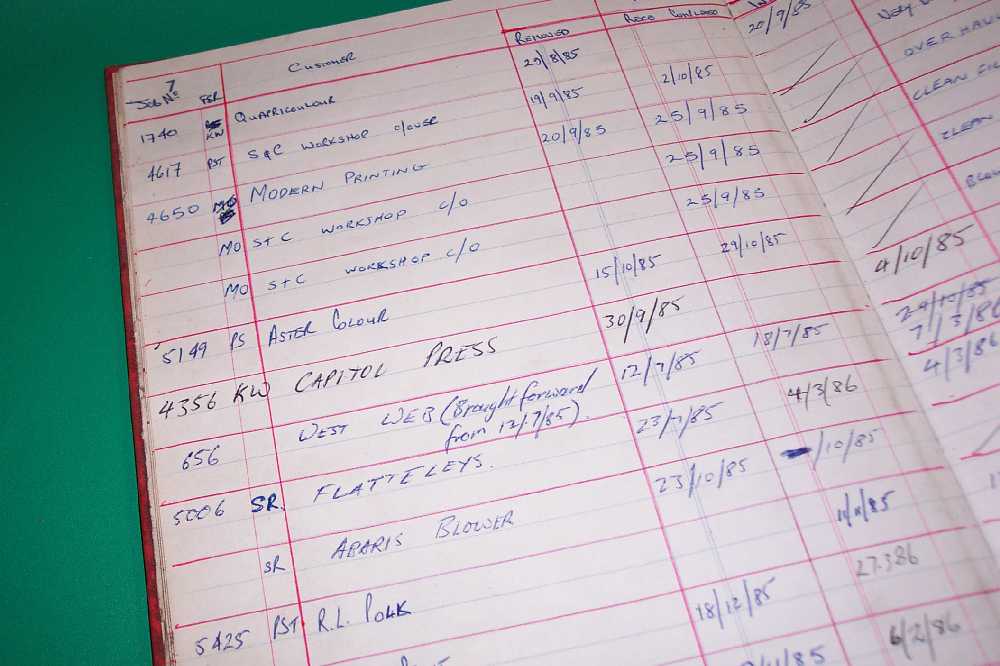 7
Job No PSR Customer Removed Recd
20/9/85
1740 KW Quadricolour 29/8/85
OVER HAUL
4617 PST S&C WORKSHOP C/OVER 19/9/85 2/10/85
CLEAN
4650 MO MODERN PRINTING 20/9/85 25/9/85
CLEAN
MO S+C WORKSHOP C/O 25/9/85
MO S+C WORKSHOP C/O 25/9/85
5149 PS ASTER COLOUR 15/10/85 29/10/85 4/10/85
4356 KW CAPITOL PRESS 30/9/85 29/10/85
7/3/86
656 WEST WEB (Brought forward from 12/7/85). 12/7/85 18/7/85 4/3/86
5006 SR. FLATTELEYS. 23/7/85 4/3/86
SR ABARIS BLOWER 23/10/85 /10/85
11/11/85
5425 PST R.L. POLK 18/12/85 27.3.86
6/2/86